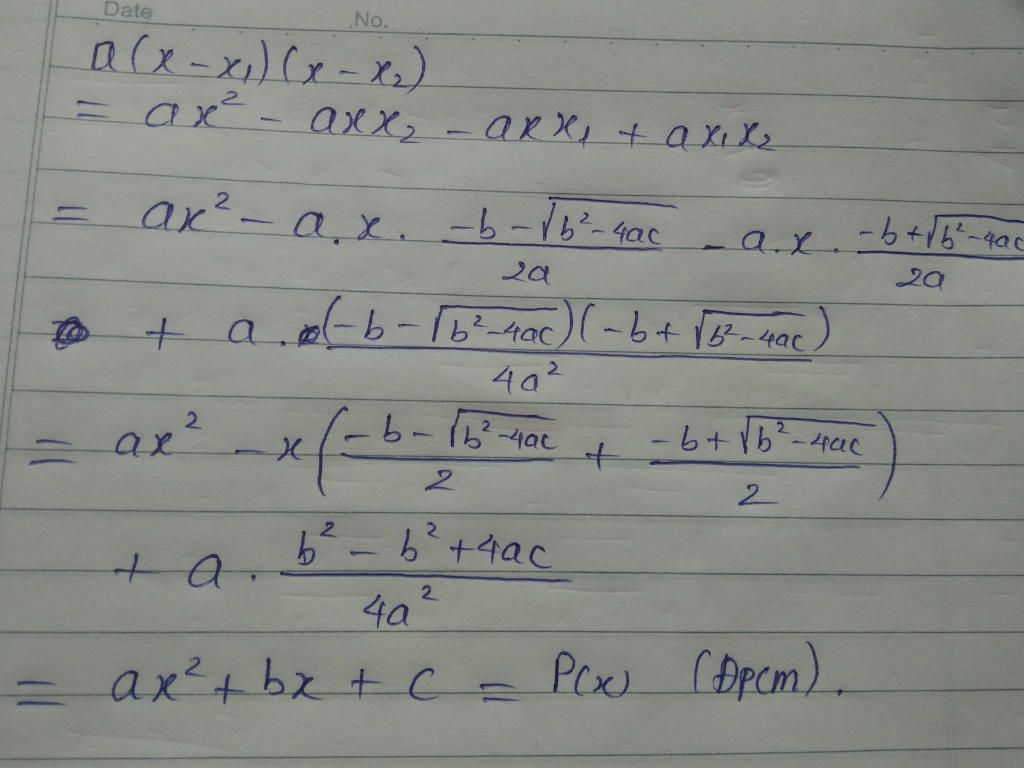 Date No.
a(x - x₁)(x - x₂)
= ax² - axx₂ - axx₁ + ax₁x₂
= ax² - a.x. (-b - √(b² - 4ac))/2a - a.x. (-b + √(b² - 4ac))/2a
+ a. ((-b - √(b² - 4ac))(-b + √(b² - 4ac)))/4a²
= ax² - x((-b - √(b² - 4ac))/2 + (-b + √(b² - 4ac))/2)
+ a. (b² - b² + 4ac)/4a²
= ax² + bx + c = P(x) (Đpcm).